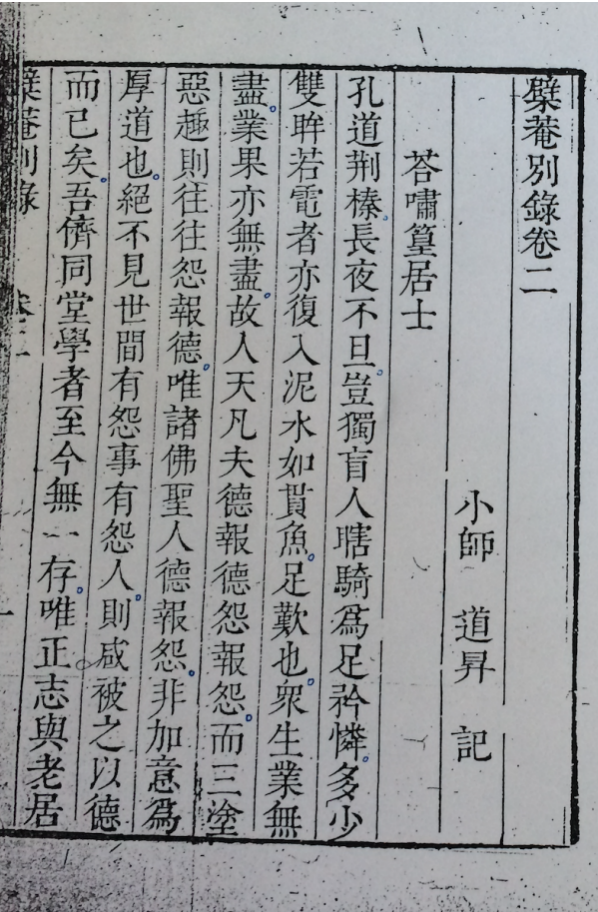 檗菴別錄卷二
小師　道昇　記
荅嘯篁居士
孔道荆榛。長夜不旦。豈獨盲人瞎騎爲足矜憐。多少
雙眸若電者亦復入泥水如貫魚。足歎也。衆生業無
盡。業果亦無盡。故人天凡夫德報德怨報怨。而三塗
惡趣則往往怨報德。唯諸佛聖人德報怨。非加意爲
厚道也。絕不見世間有怨事有怨人。則咸被之以德
而已矣。吾儕同堂學者至今無一存。唯正志與老居
檗菴別錄　卷二　一